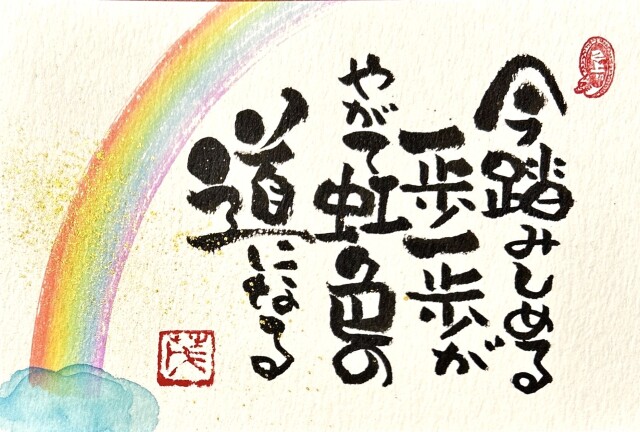 今踏みしめる
一歩一歩が
やがて虹の色の
道になる